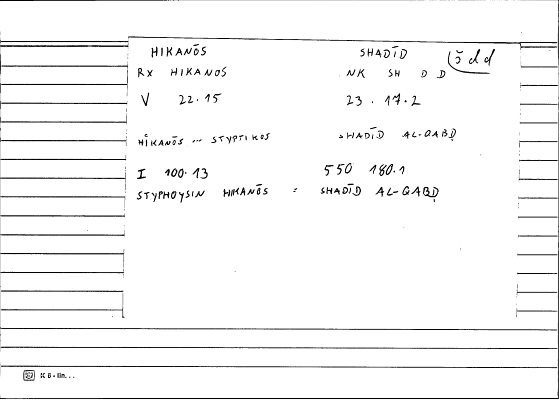 HIKANŌS SHADĪD šdd
RX HIKANOS NK SH D D
V 22.15 23.17.2
HIKANŌS ... STYPTIKOS SHADĪD AL-QABḌ
I 100.13 550 180.1
STYPHOYSIN HIKANŌS = SHADĪD AL-QABḌ